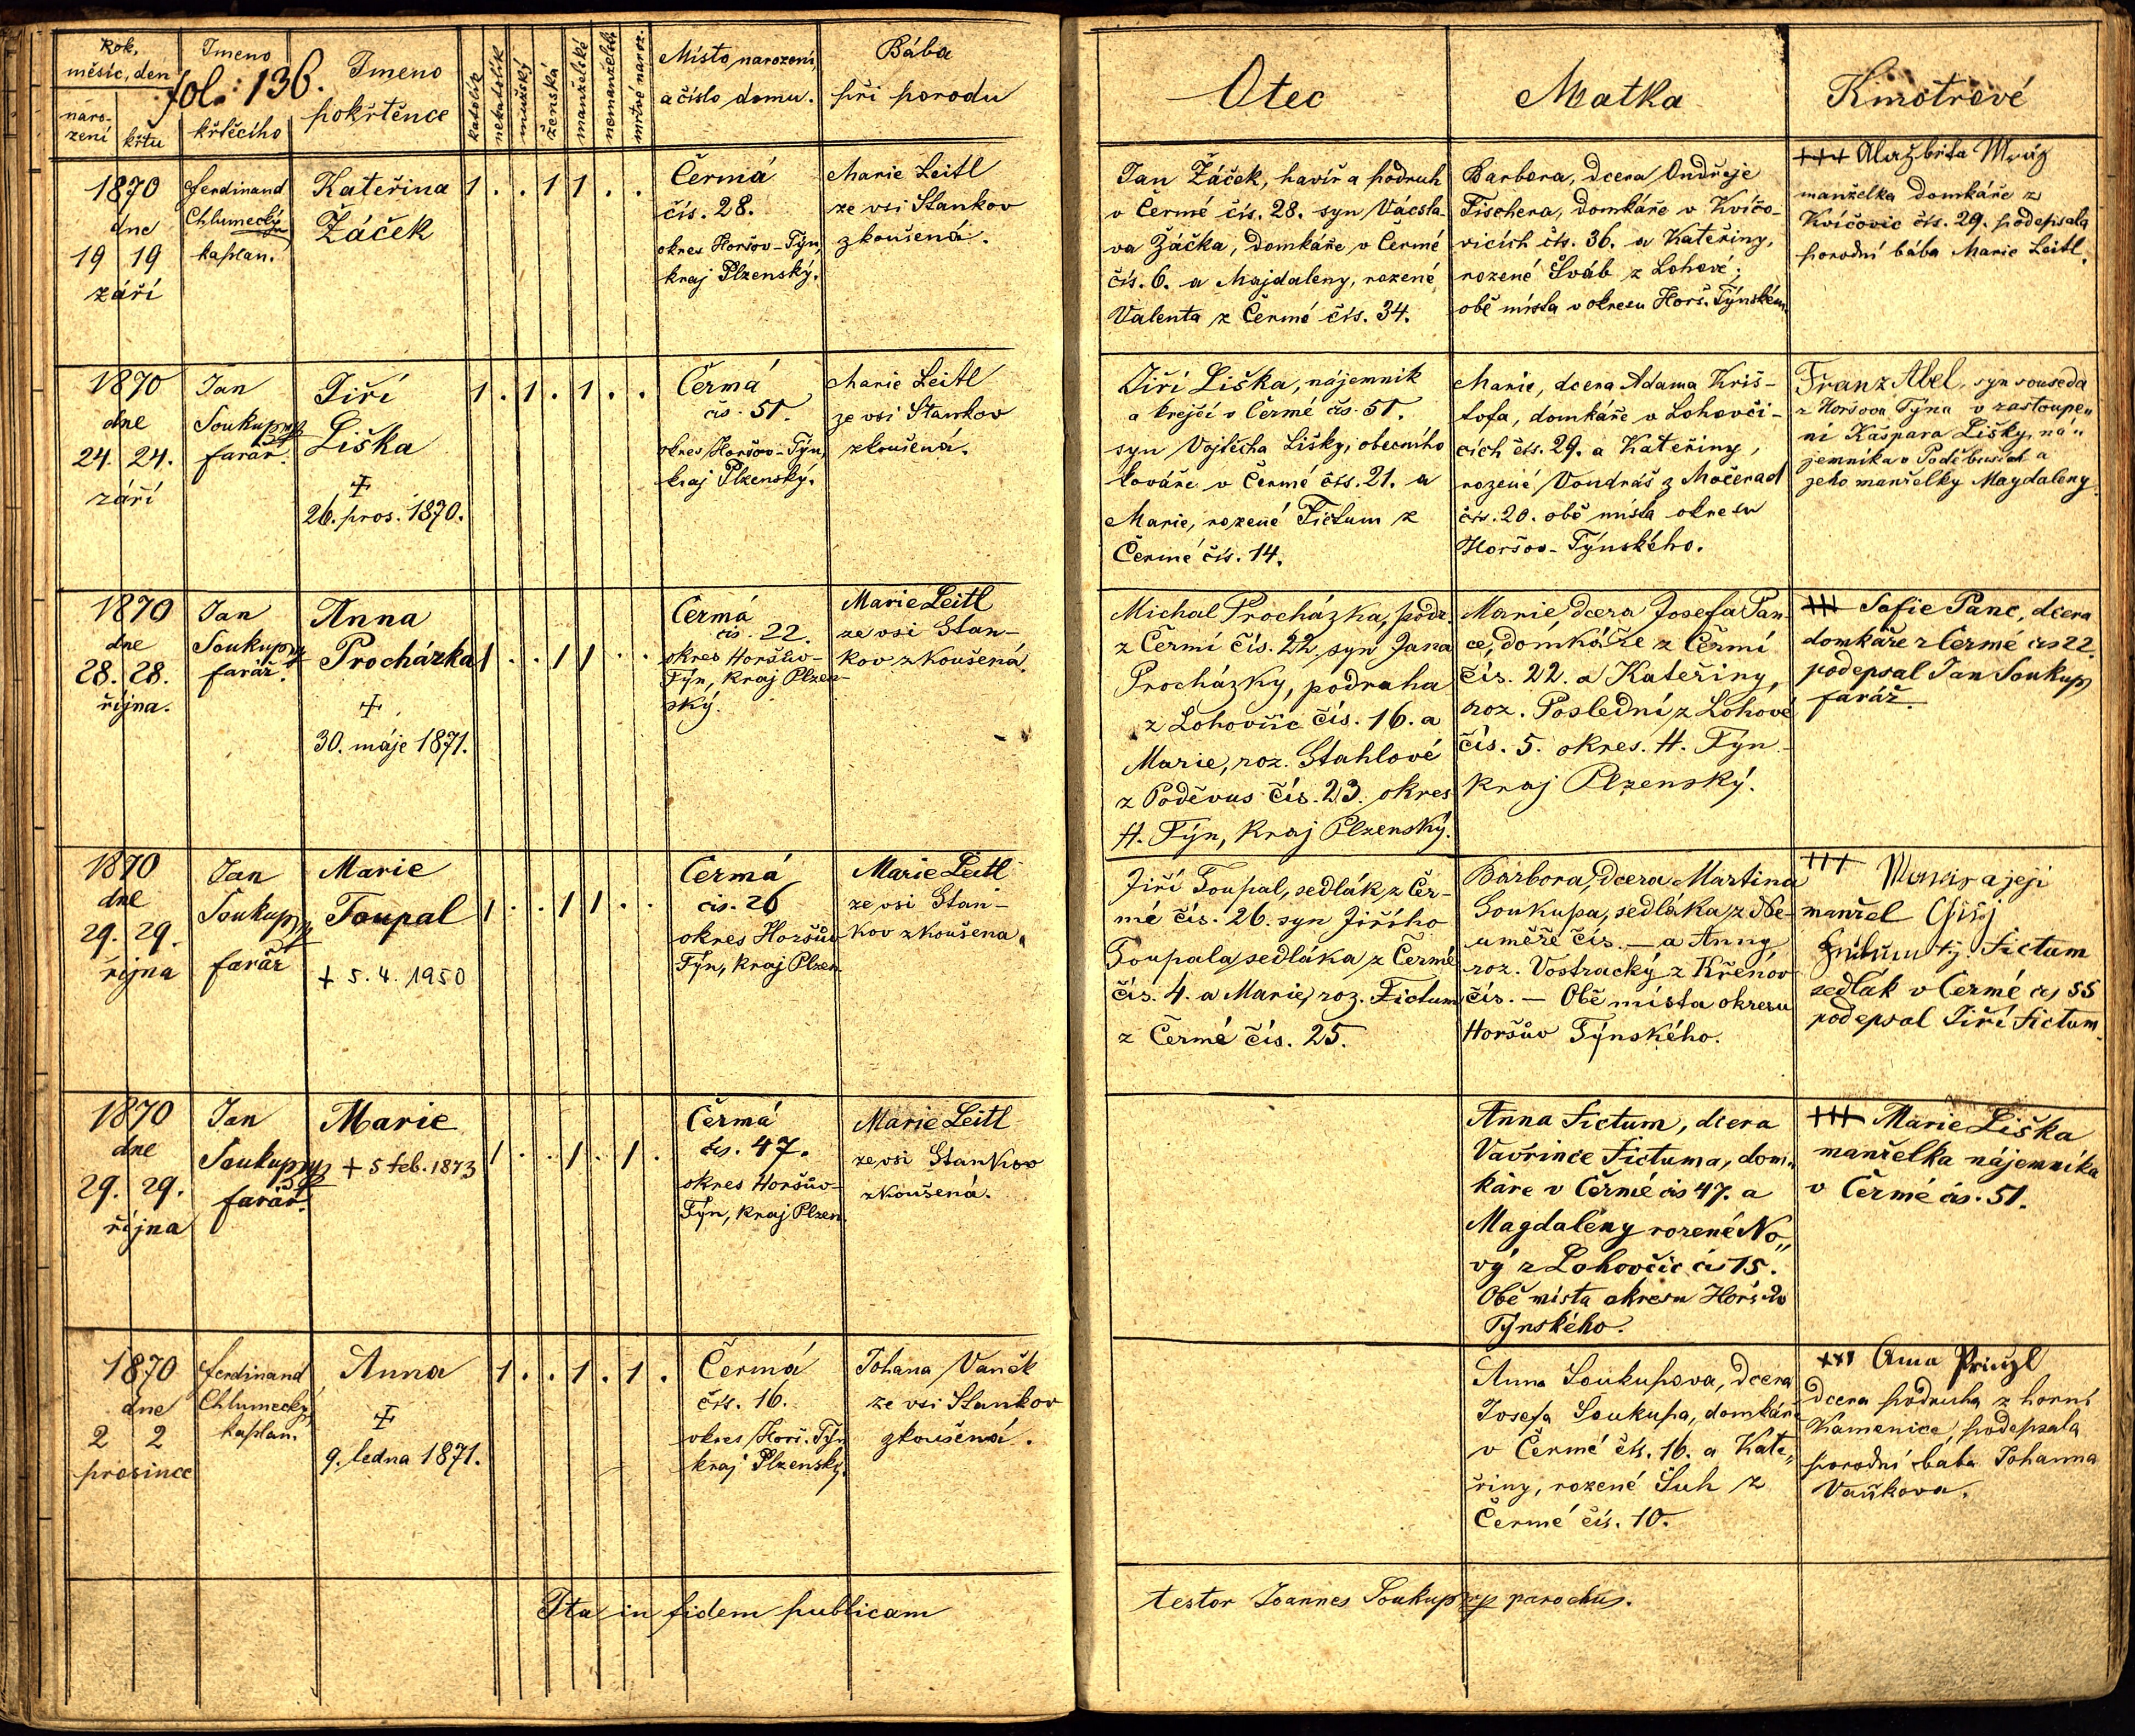 fol: 136.
Rok, měsíc, den
narození
křtu
Imeno křtěcího
Imeno pokřtěnce
katolík
nekatolík
mužský
ženská
manželské
nemanželsk.
mrtvě naroz.
Místo narození,
a číslo domu.
Bába
při porodu
Otec
Matka
Kmotrové
1870
dne
19 19
září
Ferdinand
Chlumecký
kaplan.
Kateřina
Žáček
1 . . 1 1 . .
Čermá
čís. 28.
okres Horšov-Týn,
kraj Plzenský.
Marie Leitl
ze vsi Stankov
zkoušená.
Jan Žáček, havíř a podruh
v Čermé čís. 28. syn Václa-
va Žáčka, domkáře v Čermé
čís. 6. a Majdaleny, rozené
Valenta z Čermé čís. 34.
Barbora, dcera Ondřeje
Fischera, domkáře v Kvíčo-
vicích čís. 36. a Kateřiny,
rozené Šváb z Lohové;
obě místa v okresu Horš. Týnském.
+++ Alažbita Mráz
manželka domkáře z
Kvíčovic čís. 29. podepsala
porodní bába Marie Leitl.
1870
dne
24. 24.
září
Jan
Soukup
farář.
Jiří
Liška
+
26. pros. 1870.
1 . 1 . 1 . .
Čermá
čís. 51.
okres Horšov-Týn,
kraj Plzenský.
Marie Leitl
ze vsi Stankov
zkoušená.
Jiří Liška, nájemník
a krejčí v Čermé čís. 51.
syn Vojtěcha Lišky, obecního
kováře v Čermé čís. 21. a
Marie, rozené Fictum z
Čermé čís. 14.
Marie, dcera Adama Kriš-
tofa, domkáře v Lohovči-
cích čís. 29. a Kateřiny,
rozené Vondráš z Močerad
čís. 20. obě místa okresu
Horšov-Týnského.
Franz Abel, syn souseda
z Horšova Týna v zastoupe„
ní Kašpara Lišky, ná„
jemníka v Poděbusích a
jeho manželky Magdaleny.
1870
dne
28. 28.
října.
Jan
Soukup
farář.
Anna
Procházka
+
30. máje 1871.
1 . . 1 1 . .
Čermá
čís. 22.
okres Horšův-
Týn, kraj Plzen-
ský.
Marie Leitl
ze vsi Stan-
kov zkoušená.
Michal Procházka, podr.
z Čermí čís. 22, syn Jana
Procházky, podruha
z Lohovčic čís. 16. a
Marie, roz. Stahlové
z Poděvus čís. 23. okres
H. Týn, kraj Plzenský.
Marie, dcera Josefa Pan-
ce, domkáře z Čermí
čís. 22. a Kateřiny,
roz. Poslední z Lohové
čís. 5. okres. H. Týn
kraj Plzenský.
+++ Sofie Panc, dcera
domkáře z Čermé čís 22.
podepsal Jan Soukup
farář.
1870
dne
29. 29.
října
Jan
Soukup
farář
Marie
Toupal
+ 5. 4. 1950
1 . . 1 1 . .
Čermá
čís. 26
okres Horšův
Týn, kraj Plzen.
Marie Leitl
ze vsi Stan-
kov zkoušena.
Jiří Toupal, sedlák z Čer-
mé čís. 26. syn Jiřího
Toupala, sedláka z Čermé
čís. 4. a Marie, roz. Fictum
z Čermé čís. 25.
Barbora, dcera Martina
Soukupa, sedláka z Ne-
uměře čís. — a Anny
roz. Vostracký z Křenov
čís. — Obě místa okresu
Horšův Týnského.
+++ a její
manžel
Fictum
sedlák v Čermé čís 55
podepsal Jiří Fictum
1870
dne
29. 29.
října
Jan
Soukup
farář.
Marie
+ 5 feb. 1873
1 . . 1 . 1 .
Čermá
čís. 47.
okres Horšův-
Týn, kraj Plzen.
Marie Leitl
ze vsi Stankov
zkoušená.
Anna Fictum, dcera
Vavřince Fictuma, dom„
káře v Čermé čís 47. a
Magdalény rozené No„
vý z Lohovčic čís 15.
Obě místa okresu Horšův
Týnského.
+++ Marie Liška
manželka nájemníka
v Čermé čís. 51.
1870
dne
2 2
prosince
Ferdinand
Chlumecký,
kaplan.
Anna
+
9. ledna 1871.
1 . . 1 . 1 .
Čermá
čís. 16.
okres Horš. Týn
kraj Plzenský.
Johana Vaněk
ze vsi Stankov
zkoušená.
Anna Soukupova, dcera
Josefa Soukupa, domkáře
v Čermé čís. 16. a Kate„
řiny, rozené Suh z
Čermé čís. 10.
+++ Anna Prinzl
dcera podruha z horní
Kamenice, podepsala
porodní baba Johanna
Vaňkova.
Ita in fidem publicam
testor Joannes Soukup mp parochus.